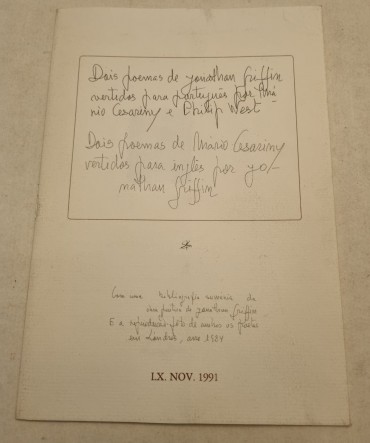 Dois poemas de Jonathan Griffin
vertidos para português por Má
rio Cesariny e Philip West
Dois poemas de Mário Cesariny
vertidos para inglês por Jo-
nathan Griffin
Com uma bibliografia sumária da
obra poética de Jonathan Griffin
E a reprodução-foto de ambos os poetas
em Londres, ano 1984
LX. NOV. 1991